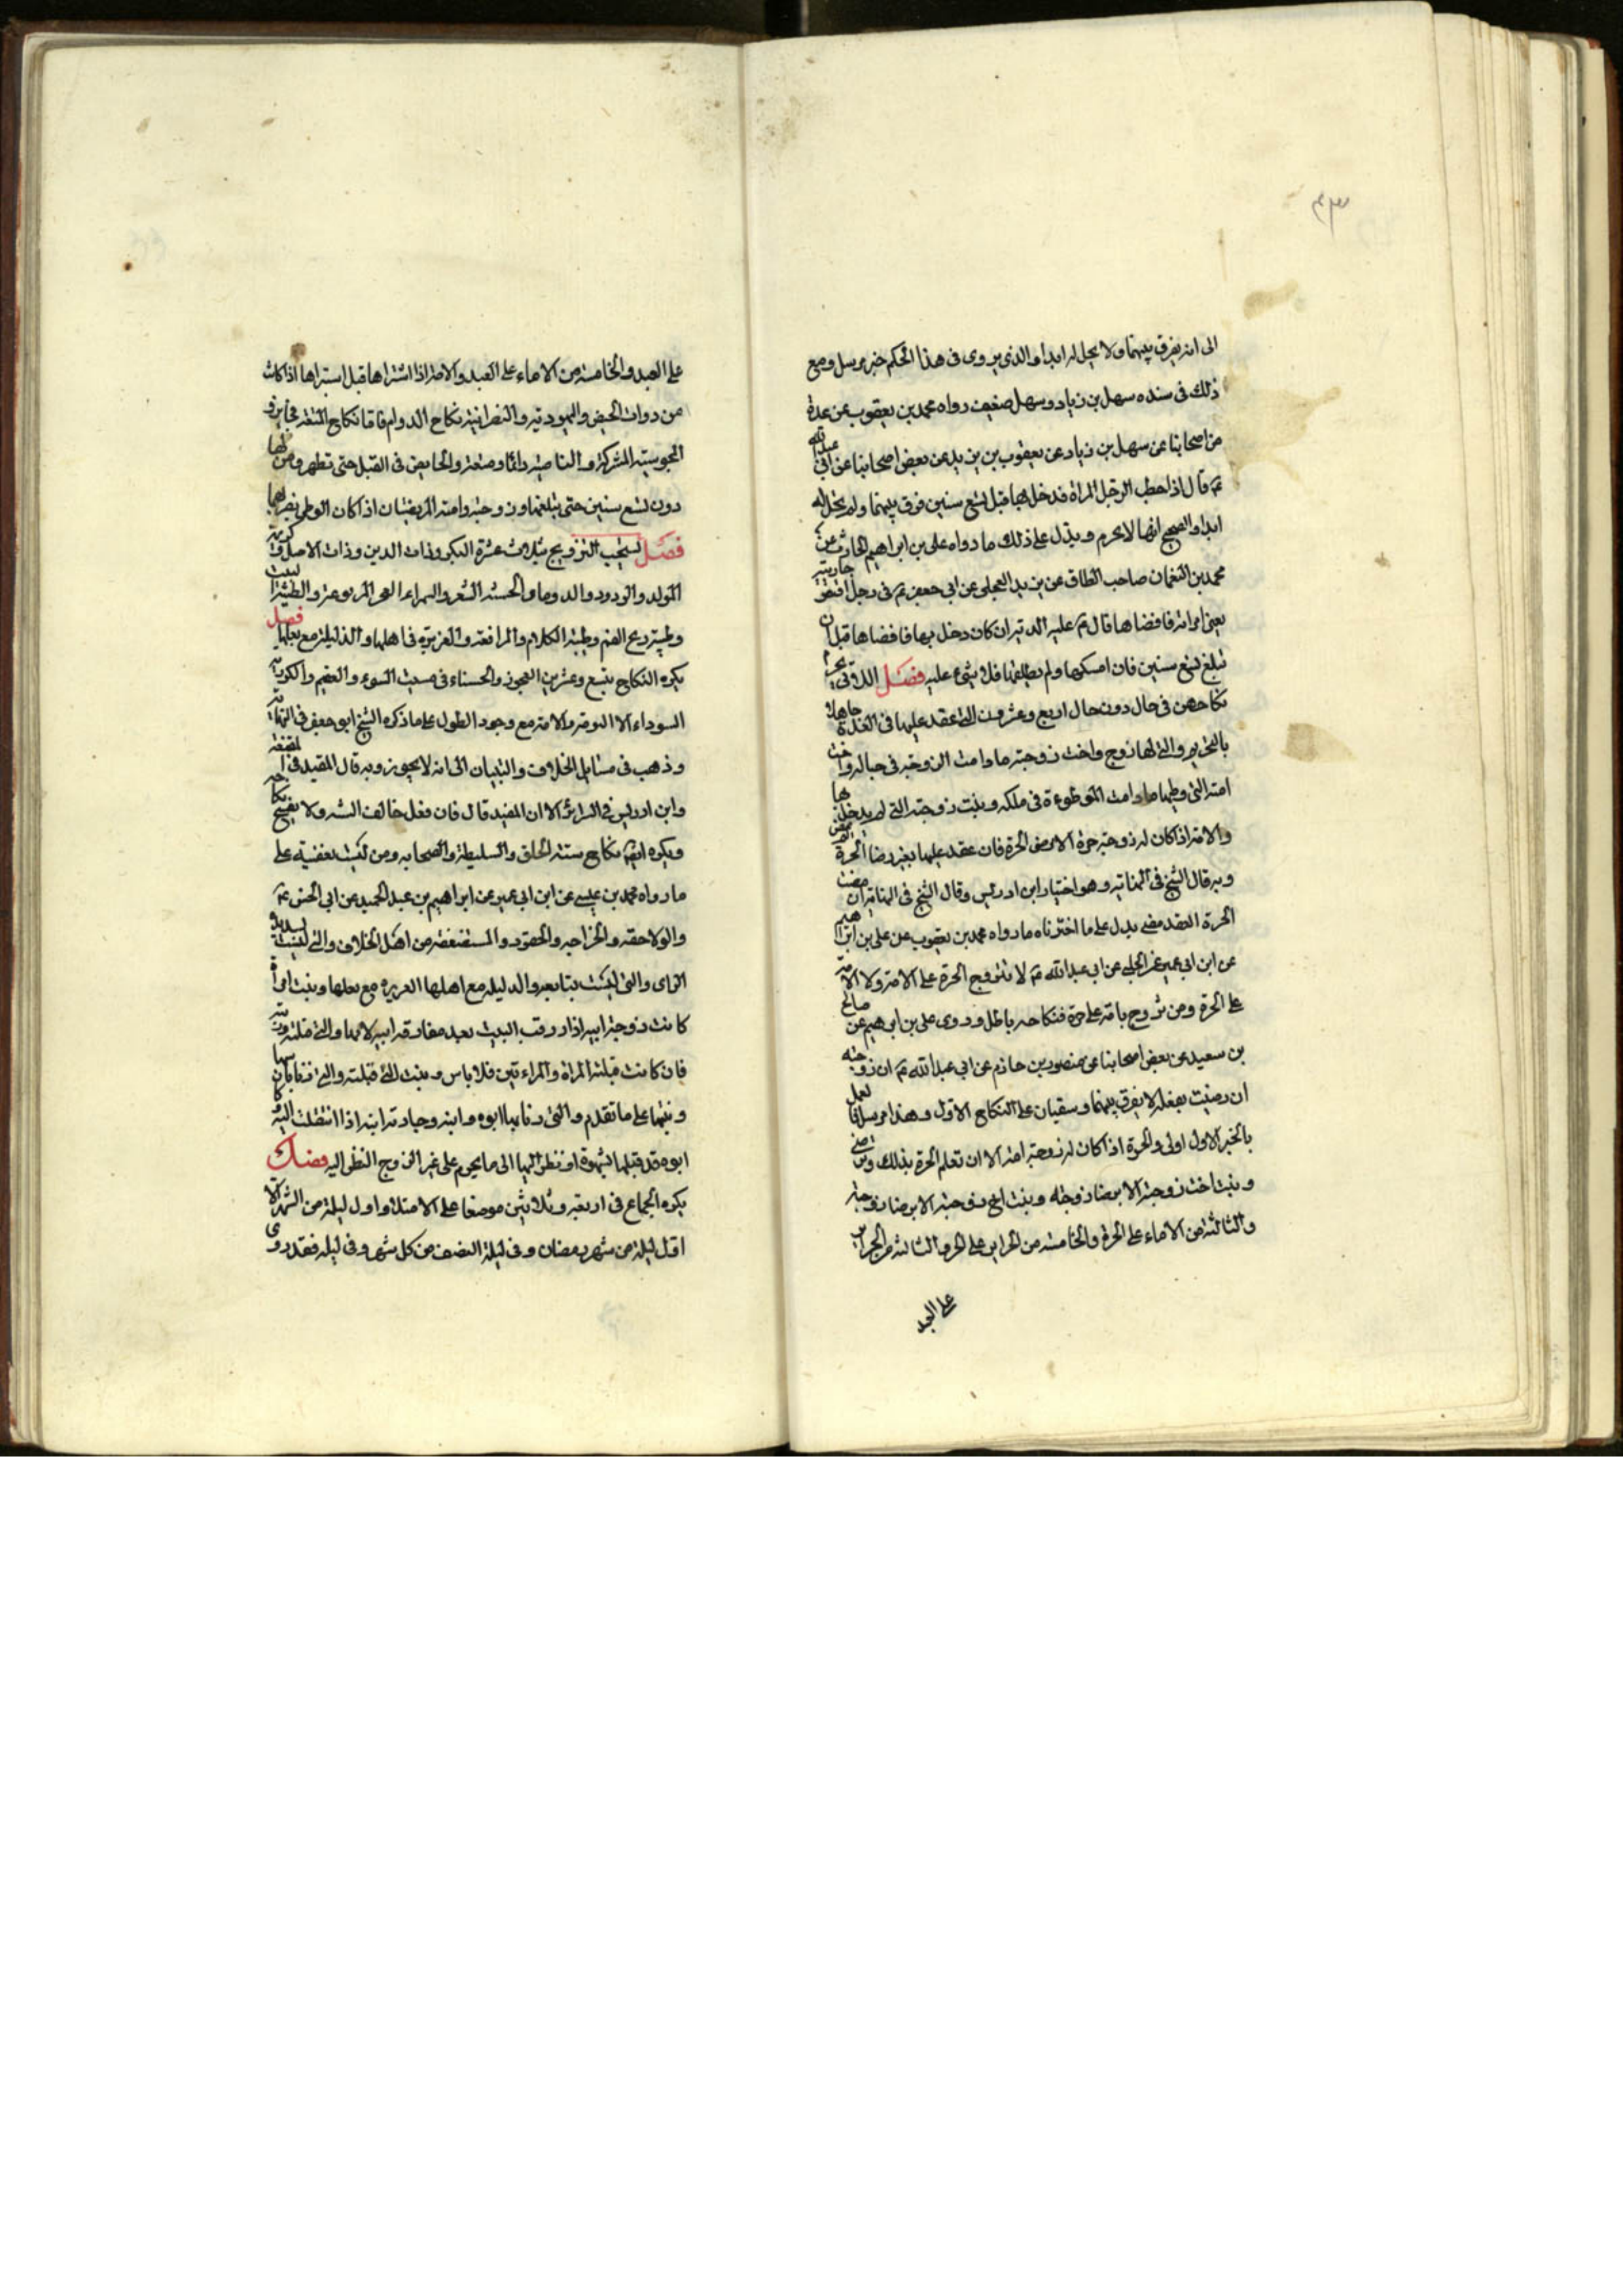 الى انه يفرق بينهما ولا يحل له ابدا والذى يروى فى هذا الحكم خبر مرسل ومع
ذلك فى سنده سهل بن زياد وسهل ضعيف رواه محمد بن يعقوب عن عدة
من اصحابنا عن سهل بن زياد عن يعقوب بن يزيد عن بعض اصحابنا عن ابى عبد الله
ع قال اذا خطب الرجل المراة فدخل بها قبل تسع سنين فرق بينهما ولم تحل له
ابدا والصحيح انها لا تحرم ويدل على ذلك ما رواه على بن ابراهيم الحارث عن
محمد بن النعمان صاحب الطاق عن بريد العجلى عن ابى جعفر ع فى رجل افتض جاريته
يعنى امراته فافضاها قال ع عليه الدية ان كان دخل بها فافضاها قبل ان
تبلغ تسع سنين فان امسكها ولم يطلقها فلا شىء عليه فصل اللاتى يحرم
نكاحهن فى حال دون حال اربع وعشرون التى عقد عليها فى العدة جاهلا
بالتحريم والتى لها زوج واخت زوجته ما دامت الزوجة فى حباله واخت
امته التى وطيها ما دامت الموطوءة فى ملكه وبنت زوجته التى لم يدخل بها
والامة اذا كان له زوجة حرة الا برضى الحرة فان عقد عليها بغير رضا الحرة
وبه قال الشيخ فى النهاية وهو اختيار ابن ادريس وقال الشيخ فى النهاية ان مضت
الحرة العقد مضى يدل على ما اخترناه ما رواه محمد بن يعقوب عن على بن ابراهيم
عن ابن ابى عمير عن الحلبى عن ابى عبد الله ع لا تتزوج الحرة على الامة ولا الامة
على الحرة ومن تزوج بامة على حرة فنكاحه باطل وروى على بن ابرهيم عن صالح
بن سعيد عن بعض اصحابنا عن منصور بن حازم عن ابى عبد الله ع ان زوجته
ان رضيت بفعله لا يفرق بينهما ويبقيان على النكاح الاول وهذا مرسل
بالخبر الاول اولى والحرة اذا كان له زوجة امة الا ان تعلم الحرة بذلك وترضى
وبنت اخت زوجته الا برضا زوجته وبنت اخ زوجته الا برضا زوجته
والثالثة من الاماء على الحرة والخامسة من الحراير على الحر والثالثة من الحراير
على العبد
على العبد والخامسة من الاماء على العبد والامة اذا اشتراها قبل استبراها اذا كانت
من ذوات الحيض واليهودية والنصرانية نكاح الدوام فاما نكاح المتعة فجايز و
المجوسية المشركة والناصبة دائما ومتعة والحايض فى القبل حتى تطهر ومن لها
دون تسع سنين حتى تبلغها وزوجته وامته المريضتان اذا كان الوطى يضر بهما
فصل يستحب التزويج بثلث عشرة البكر وذات الدين وذات الاصل
الولد والودود والحسنة الشعر والسمراء المربوعة والطيبة
وطيبة ريح الفم وطيبة الكلام والموافقة والعزيزة فى اهلها والذليلة مع بعلها فصل
يكره النكاح بتسع وعشرين العجوز والحسناء فى منبت السوء والعقيم والكردية
السوداء الا النوبة والامة مع وجود الطول على ما ذكره الشيخ ابو جعفر فى النهاية
وذهب فى مسايل الخلاف والتبيان الى انه لا يجوز وبه قال المفيد فى المقنعة
وابن ادريس فى السرائر الا ان المفيد قال فان فعل خالف السنة ولا يفسخ نكاحه
ويكره ايضا نكاح سيئة الخلق والسليطة والصخابة ومن ليست بعفيفة على
ما رواه محمد بن عيسى عن ابن ابى عمير عن ابراهيم بن عبد الحميد عن ابى الحسن ع
والولاجة والخراجة والحقود والمستضعفة من اهل الخلاف والتى ليست بسديدة
الراى والتى ليست بتابعة والذليلة مع اهلها العزيزة مع بعلها وبنت امراة
كانت زوجة ابيه اذا رزقت البنت بعد مفارقة ابيه لامها والتى قبلته وربته
فان كانت قبلته المراة والمراتين فلا باس وبنت التى قبلته والتى
وبنتها على ما تقدم والتى زنا بها ابوه وابنه وجارية ابنه اذا انتقلت اليه
ابوه قد قبلها بشهوة او نظر اليها الى ما يحرم على غير الزوج النظر اليه فصل
يكره الجماع فى اربعة وثلاثين موضعا على الامتلا واول ليلة من الشهر الا
اول ليلة من شهر رمضان وفى ليلة النصف من كل شهر وفى ليلة فقد روى